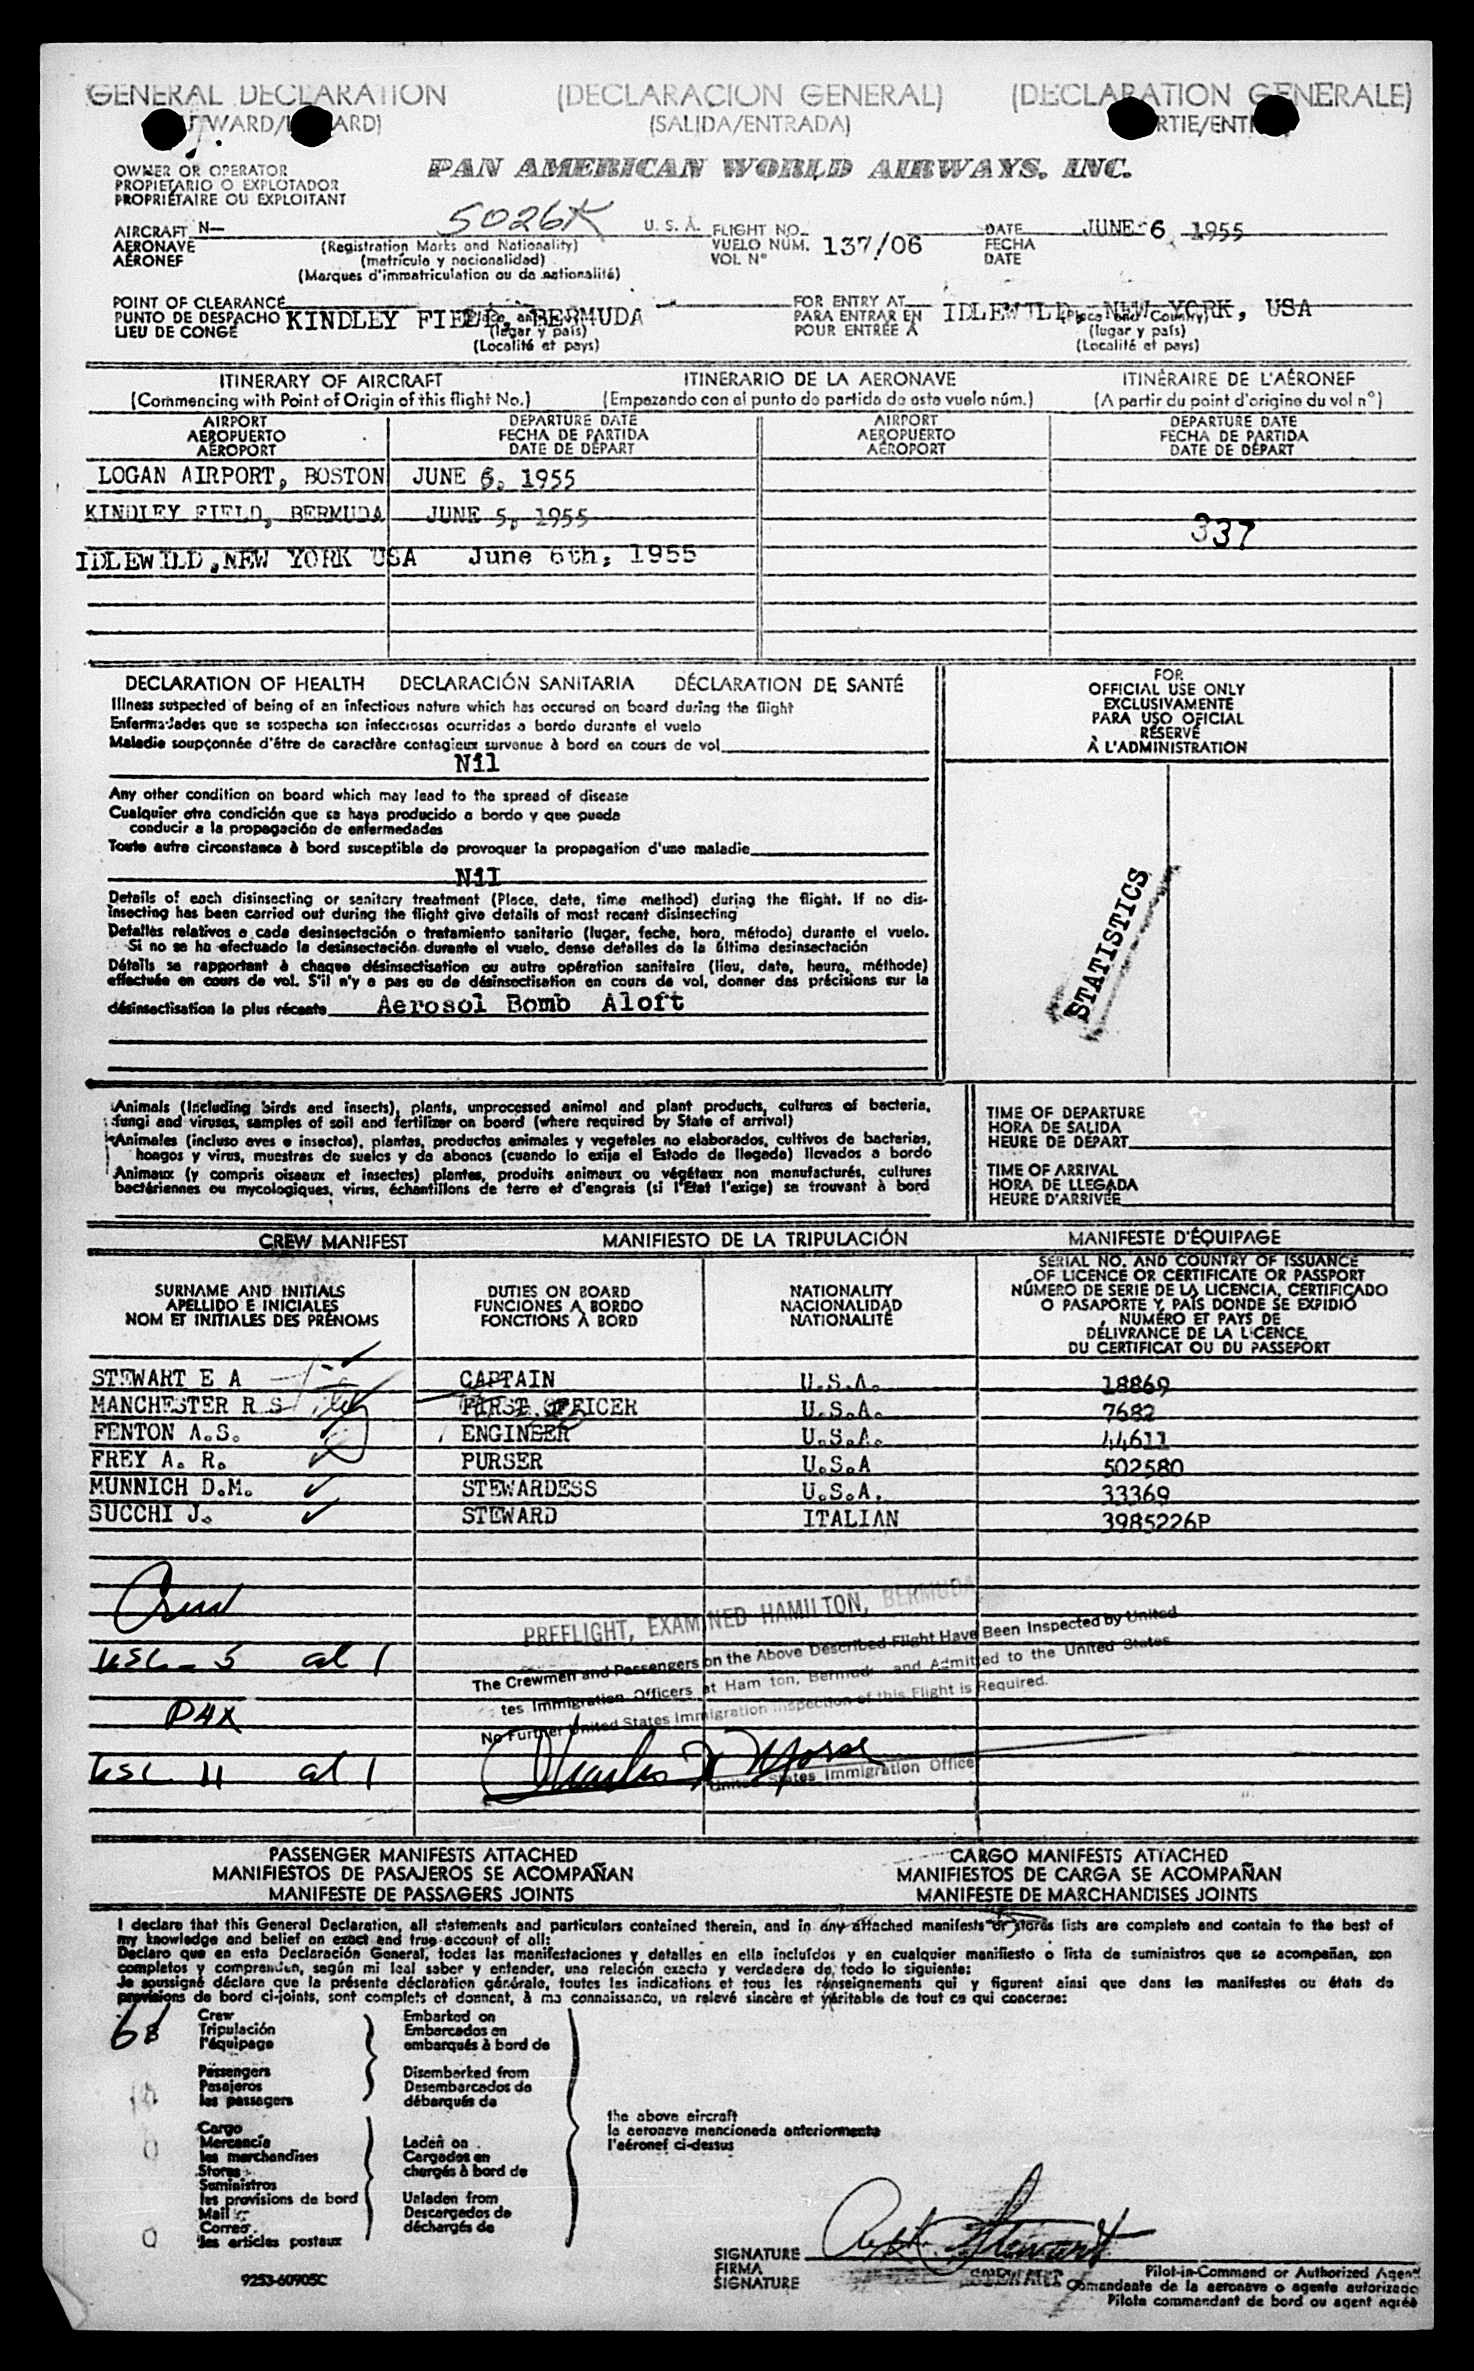 GENERAL DECLARATION (DECLARACION GENERAL) (DECLARATION GENERALE)
(SALIDA/ENTRADA)
OWNER OR OPERATOR
PROPIETARIO O EXPLOTADOR
PROPRIÉTAIRE OU EXPLOITANT
PAN AMERICAN WORLD AIRWAYS, INC.
AIRCRAFT N- 5026K U. S. A. FLIGHT NO. DATE JUNE 6, 1955
AERONAVE (Registration Marks and Nationality) VUELO NÚM. 137/06 FECHA
AÉRONEF (matrícula y nacionalidad) VOL N° DATE
(Marques d'immatriculation ou de nationalité)
POINT OF CLEARANCE FOR ENTRY AT
PUNTO DE DESPACHO KINDLEY FIELD, BERMUDA PARA ENTRAR EN IDLEWILD, NEW YORK, USA
LIEU DE CONGÉ (lugar y país) POUR ENTRÉE À (lugar y país)
(Localité et pays) (Localité et pays)
ITINERARY OF AIRCRAFT ITINERARIO DE LA AERONAVE ITINÉRAIRE DE L'AÉRONEF
(Commencing with Point of Origin of this flight No.) (Empezando con el punto de partida de este vuelo núm.) (A partir du point d'origine du vol n°)
AIRPORT DEPARTURE DATE AIRPORT DEPARTURE DATE
AEROPUERTO FECHA DE PARTIDA AEROPUERTO FECHA DE PARTIDA
AÉROPORT DATE DE DÉPART AÉROPORT DATE DE DÉPART
LOGAN AIRPORT, BOSTON JUNE 6, 1955
KINDLEY FIELD, BERMUDA JUNE 5, 1955 337
IDLEWILD, NEW YORK USA June 6th, 1955
DECLARATION OF HEALTH DECLARACIÓN SANITARIA DÉCLARATION DE SANTÉ
Illness suspected of being of an infectious nature which has occured on board during the flight
Enfermedades que se sospecha son infecciosas ocurridas a bordo durante el vuelo
Maladie soupçonnée d'être de caractère contagieux survenue à bord en cours de vol
Nil
Any other condition on board which may lead to the spread of disease
Cualquier otra condición que se haya producido a bordo y que pueda
conducir a la propagación de enfermedades
Toute autre circonstance à bord susceptible de provoquer la propagation d'une maladie
Nil
Details of each disinsecting or sanitary treatment (Place, date, time method) during the flight. If no dis-
insecting has been carried out during the flight give details of most recent disinsecting
Detalles relativos a cada desinsectación o tratamiento sanitario (lugar, fecha, hora, método) durante el vuelo.
Si no se ha efectuado la desinsectación durante el vuelo, dense detalles de la última desinsectación
Détails se rapportant à chaque désinsectisation ou autre opération sanitaire (lieu, date, heure, méthode)
effectuée en cours de vol. S'il n'y a pas eu de désinsectisation en cours de vol, donner des précisions sur la
désinsectisation la plus récente Aerosol Bomb Aloft
FOR
OFFICIAL USE ONLY
EXCLUSIVAMENTE
PARA USO OFICIAL
RÉSERVÉ
À L'ADMINISTRATION
STATISTICS
Animals (Including birds and insects), plants, unprocessed animal and plant products, cultures of bacteria,
fungi and viruses, samples of soil and fertilizer on board (where required by State of arrival)
Animales (incluso aves e insectos), plantas, productos animales y vegetales no elaborados, cultivos de bacterias,
hongos y virus, muestras de suelos y de abonos (cuando lo exija el Estado de llegada) llevados a bordo
Animaux (y compris oiseaux et insectes) plantes, produits animaux ou végétaux non manufacturés, cultures
bactériennes ou mycologiques, virus, échantillons de terre et d'engrais (si l'État l'exige) se trouvant à bord
TIME OF DEPARTURE
HORA DE SALIDA
HEURE DE DÉPART
TIME OF ARRIVAL
HORA DE LLEGADA
HEURE D'ARRIVÉE
CREW MANIFEST MANIFIESTO DE LA TRIPULACIÓN MANIFESTE D'ÉQUIPAGE
SURNAME AND INITIALS DUTIES ON BOARD NATIONALITY
APELLIDO E INICIALES FUNCIONES A BORDO NACIONALIDAD
NOM ET INITIALES DES PRÉNOMS FONCTIONS À BORD NATIONALITÉ
SERIAL NO. AND COUNTRY OF ISSUANCE
OF LICENCE OR CERTIFICATE OR PASSPORT
NÚMERO DE SERIE DE LA LICENCIA, CERTIFICADO
O PASAPORTE Y PAÍS DONDE SE EXPIDIÓ
NUMÉRO ET PAYS DE
DÉLIVRANCE DE LA LICENCE,
DU CERTIFICAT OU DU PASSEPORT
STEWART E A CAPTAIN U.S.A. 18869
MANCHESTER R S FIRST OFFICER U.S.A. 7682
FENTON A.S. ENGINEER U.S.A. 44611
FREY A. R. PURSER U.S.A 502580
MUNNICH D.M. STEWARDESS U.S.A. 33369
SUCCHI J. STEWARD ITALIAN 3985226P
Crew
USC - 5 al 1
PAX
USC 11 al 1
PREFLIGHT, EXAMINED HAMILTON, BERMUDA
The Crewmen and Passengers on the Above Described Flight Have Been Inspected by United
tes Immigration Officers at Ham ton, Bermuda and Admitted to the United States
No Further United States Immigration Inspection of this Flight is Required.
Charles Morse
United States Immigration Office
PASSENGER MANIFESTS ATTACHED CARGO MANIFESTS ATTACHED
MANIFIESTOS DE PASAJEROS SE ACOMPAÑAN MANIFIESTOS DE CARGA SE ACOMPAÑAN
MANIFESTE DE PASSAGERS JOINTS MANIFESTE DE MARCHANDISES JOINTS
I declare that this General Declaration, all statements and particulars contained therein, and in any attached manifests or stores lists are complete and contain to the best of
my knowledge and belief an exact and true account of all:
Declaro que en esta Declaración General, todas las manifestaciones y detalles en ella incluídos y en cualquier manifiesto o lista de suministros que se acompañan, son
completos y comprenden, según mi leal saber y entender, una relación exacta y verdadera de todo lo siguiente:
Je soussigné déclare que la présente déclaration générale, toutes les indications et tous les renseignements qui y figurent ainsi que dans les manifestes ou états de
provisions de bord ci-joints, sont complets et donnent, à ma connaissance, un relevé sincère et véritable de tout ce qui concerne:
Crew Embarked on
Tripulación Embarcados en
l'équipage embarqués à bord de
Passengers Disembarked from
Pasajeros Desembarcados de
les passagers débarqués de
the above aircraft
la aeronave mencionada anteriormente
l'aéronef ci-dessus
Cargo
Mercancía Laden on
les marchandises Cargados en
Stores chargés à bord de
Suministros
les provisions de bord Unladen from
Mail Descargados de
Correo déchargés de
les articles postaux
9253-60905C
SIGNATURE
FIRMA STEWART
SIGNATURE
Pilot-in-Command or Authorized Agent
Comandante de la aeronave o agente autorizado
Pilote commandant de bord ou agent agréé